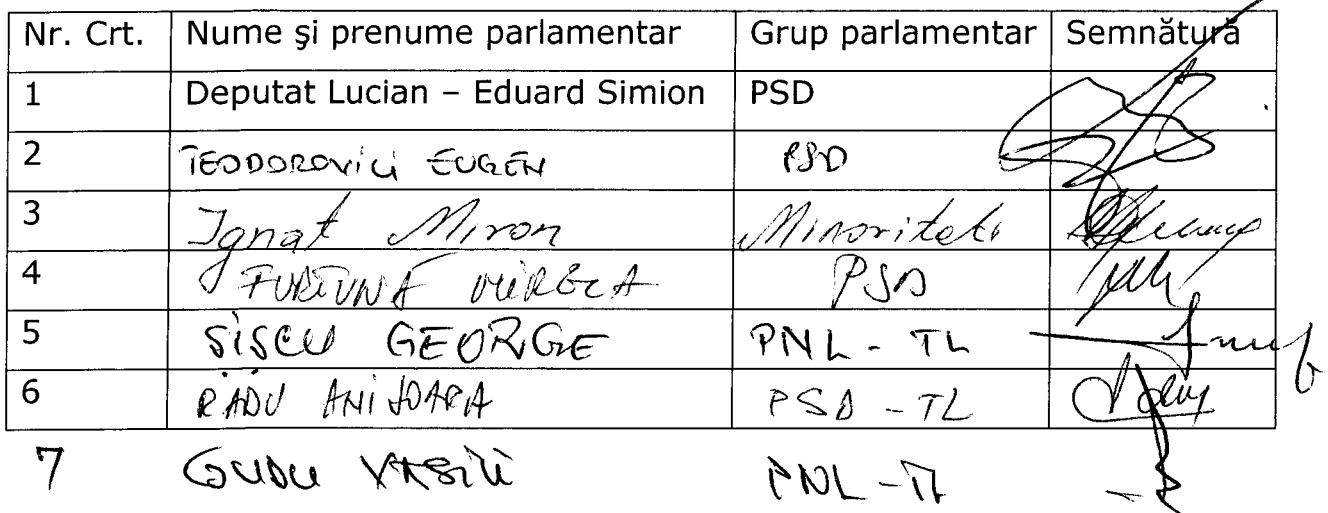 Nr. Crt. Nume şi prenume parlamentar Grup parlamentar Semnătură
1 Deputat Lucian – Eduard Simion PSD
2 TEODOROVICI EUGEN PSD
3 Ignat Miron Minoritati
4 FURTUNĂ MIRELA PSD
5 SIŞCU GEORGE PNL - TL
6 RADU ANIŞOARA PSD - TL
7 GUDU VASILE PNL - TL